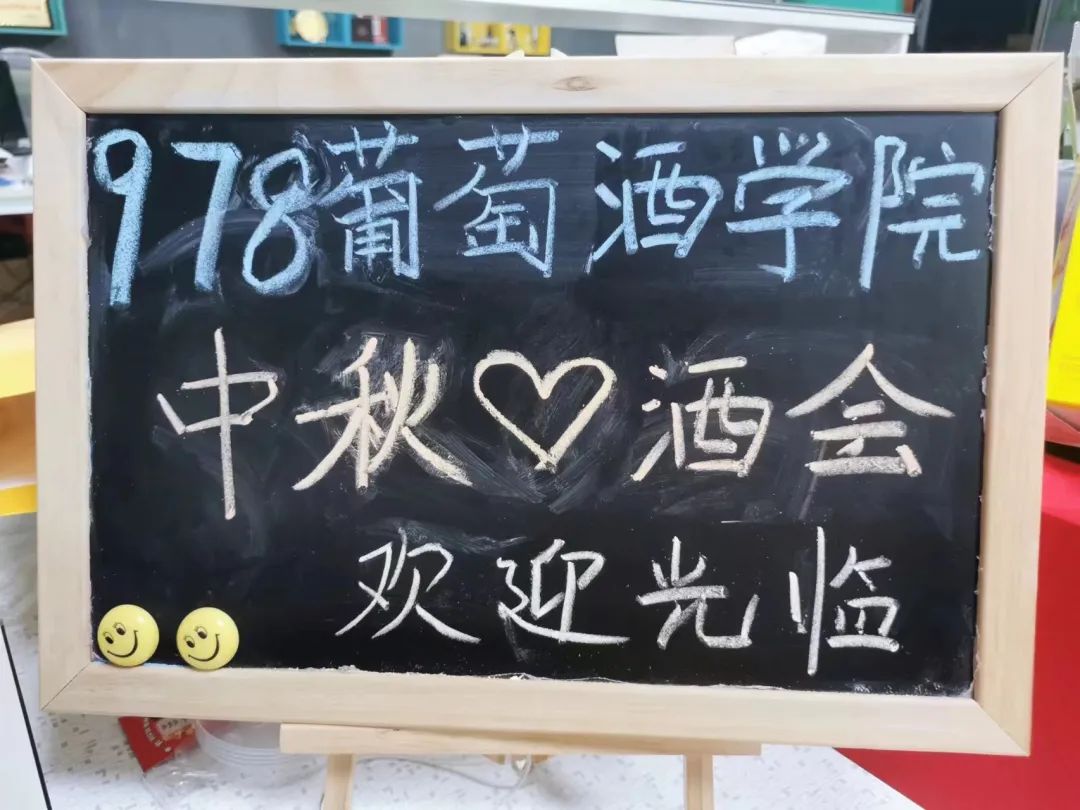 978葡萄酒学院
中秋♡酒会
欢迎光临